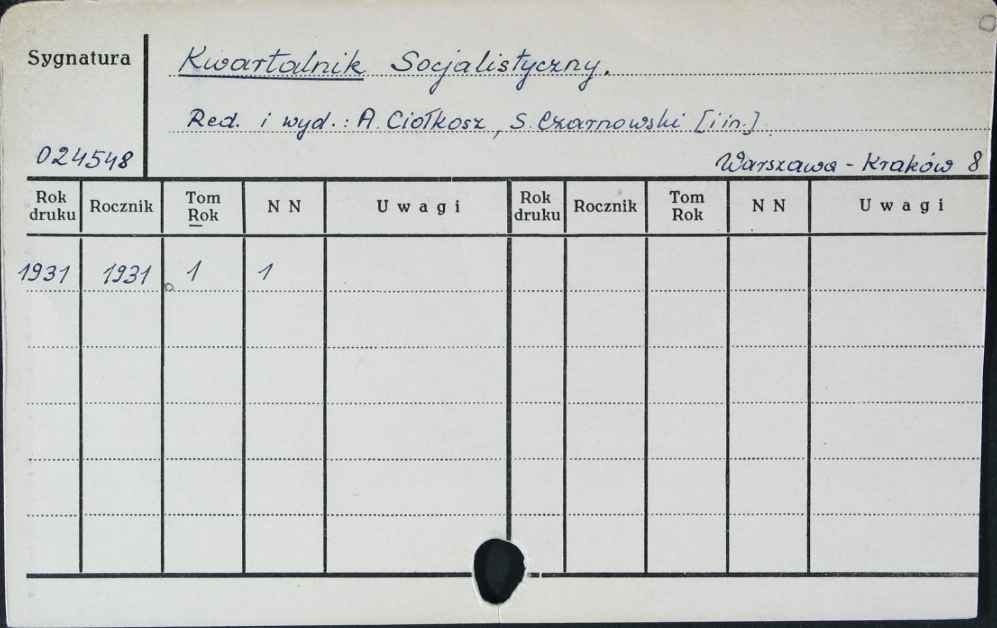 Sygnatura
Kwartalnik Socjalistyczny.
Red. i wyd.: A. Ciołkosz, S. Czarnowski [i in.]
024548
Warszawa - Kraków 8
Rok druku Rocznik Tom Rok N N Uwagi Rok druku Rocznik Tom Rok N N Uwagi
1931 1931 1 1